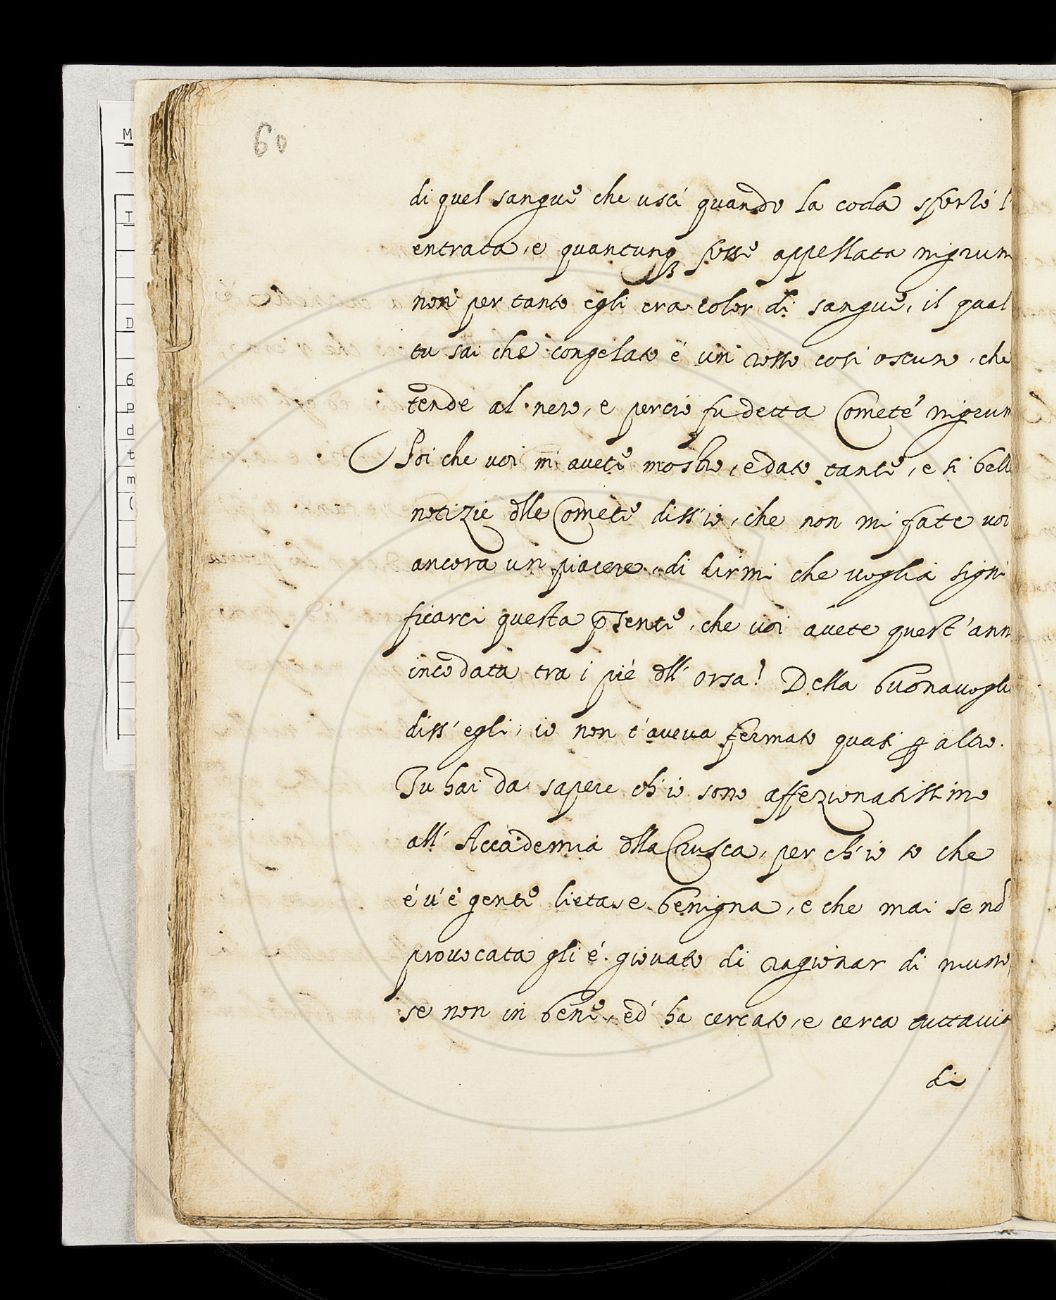 60
di quel sangue che uscì quando la coda sforzò l'
entrata, e quantunq fosse appellata nigrum
non per tanto egli era color di sangue, il qual
tu sai che congelato è un rosso così oscuro, che
tende al nero, e perciò fu detta Comete nigrum
Poi che voi m̄ avete mostro, e dato tante, e sì bell
notizie dlle Comete diss'io, che non mi fate voi
ancora un piacere di dirmi che voglia signi
ficarci questa p̄sente, che voi avete quest'ann
incodata tra i piè dll'Orsa! Della buonavogli
diss'egli, io non t'aveva fermato quasi p altro.
Tu hai da sapere ch'io sono affezionatissimo
all'Accademia dlla Crusca, per ch'io so che
è v'è gente lieta, e benigna, e che mai se nō
provocata gli è giovato di ragionar di nuno
se non in bene, ed ha cercato, e cerca tuttavia
di